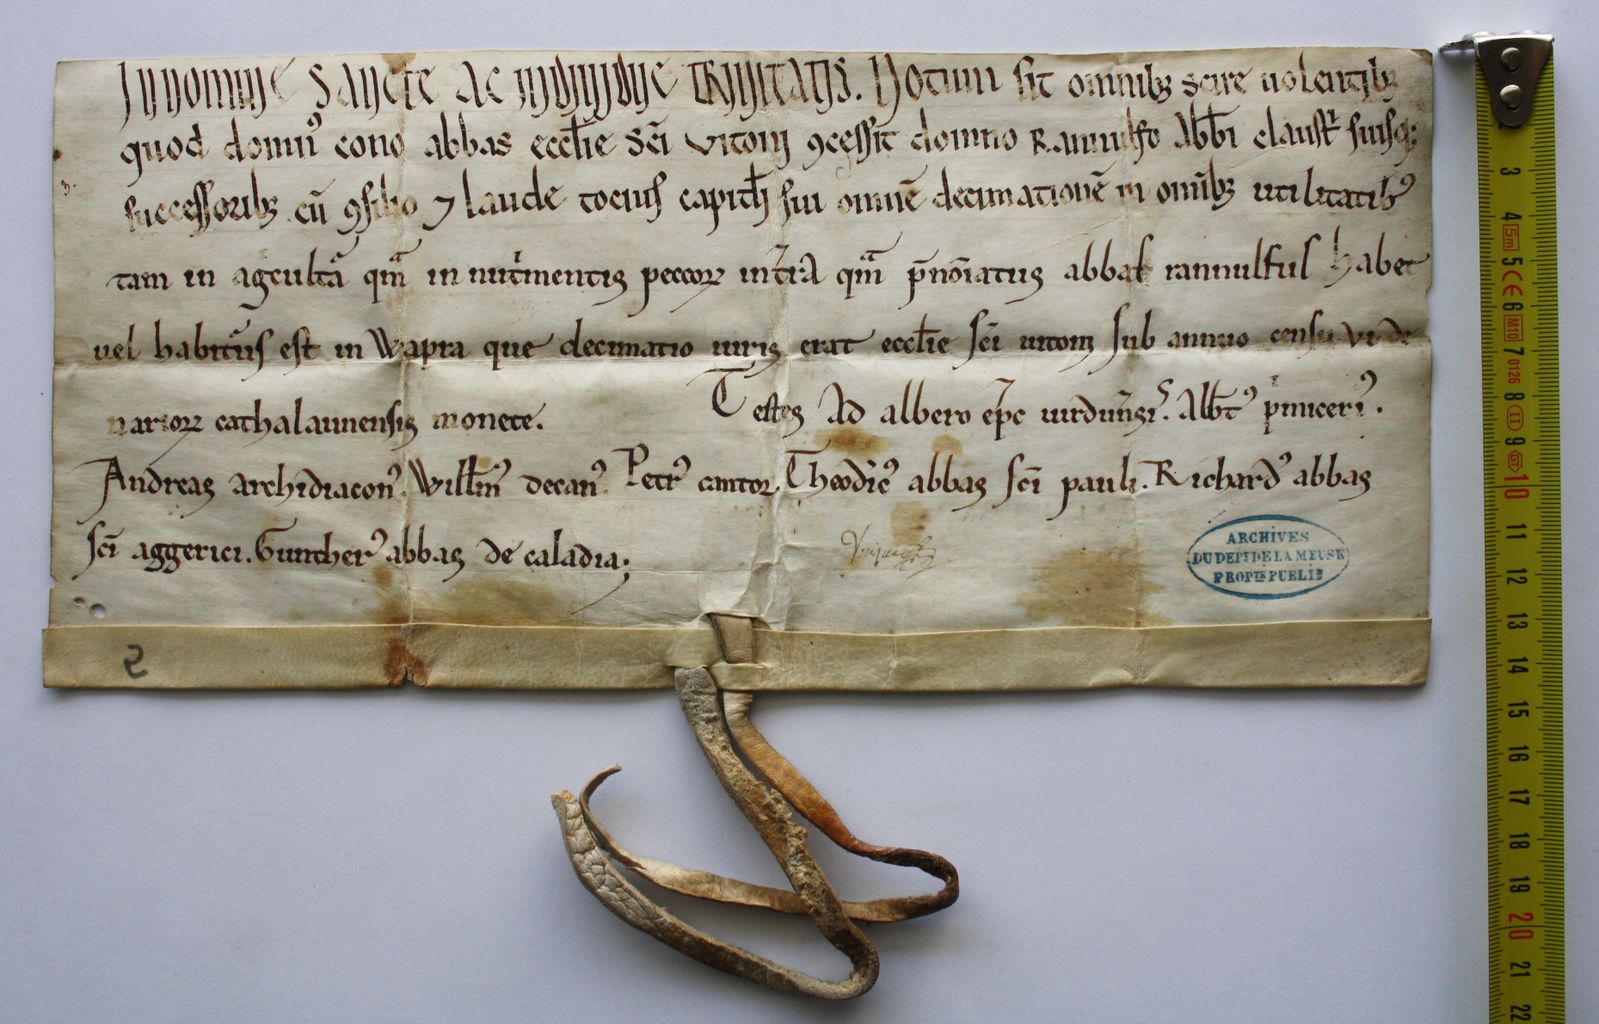 In nomine Sancte ac individue Trinitatis. Notum sit omnibꝫ scire uolentibꝫ
quod domnꝰ cono abbas eccl̄ie sc̄i vitoni ꝯcessit domno Rannulfo abb̄i claust̄ suisqꝫ
successoribꝫ cū ꝯsilio ⁊ laude tocius capitl̄i sui omnē decimationē in omībꝫ utilitatibꝰ
tam in agͥcultᷓa qᷓm in nut̄mentis peccorꝝ int̄ra qᷓm p̄noīatus abbas rannulfus habet
uel habitᷣus est in Wapra que decimatio iuris erat eccl̄ie sc̄i uitoni sub annuo censu vi de
nariorꝝ cathalaunensis monete. Testes Ad albero ep̄c uirdun̄siˢ. Alb̄tꝰ pͥmiceriꝰ.
Andreas archidiaconꝰ. Will̄mꝰ decanꝰ. Petrꝰ cantor. Theodͥicꝰ abbas sc̄i pauli. Richardꝰ abbas
sc̄i aggerici. Guntherꝰ abbas de caladia;
ARCHIVES
DU DEPᵗ DE LA MEUSE
PROPᵗᵉ PUBLIE
2
3 4 5m 5 CE 6 M10 7 0126 8 II 9 10 11 12 13 14 15 16 17 18 19 20 21 22